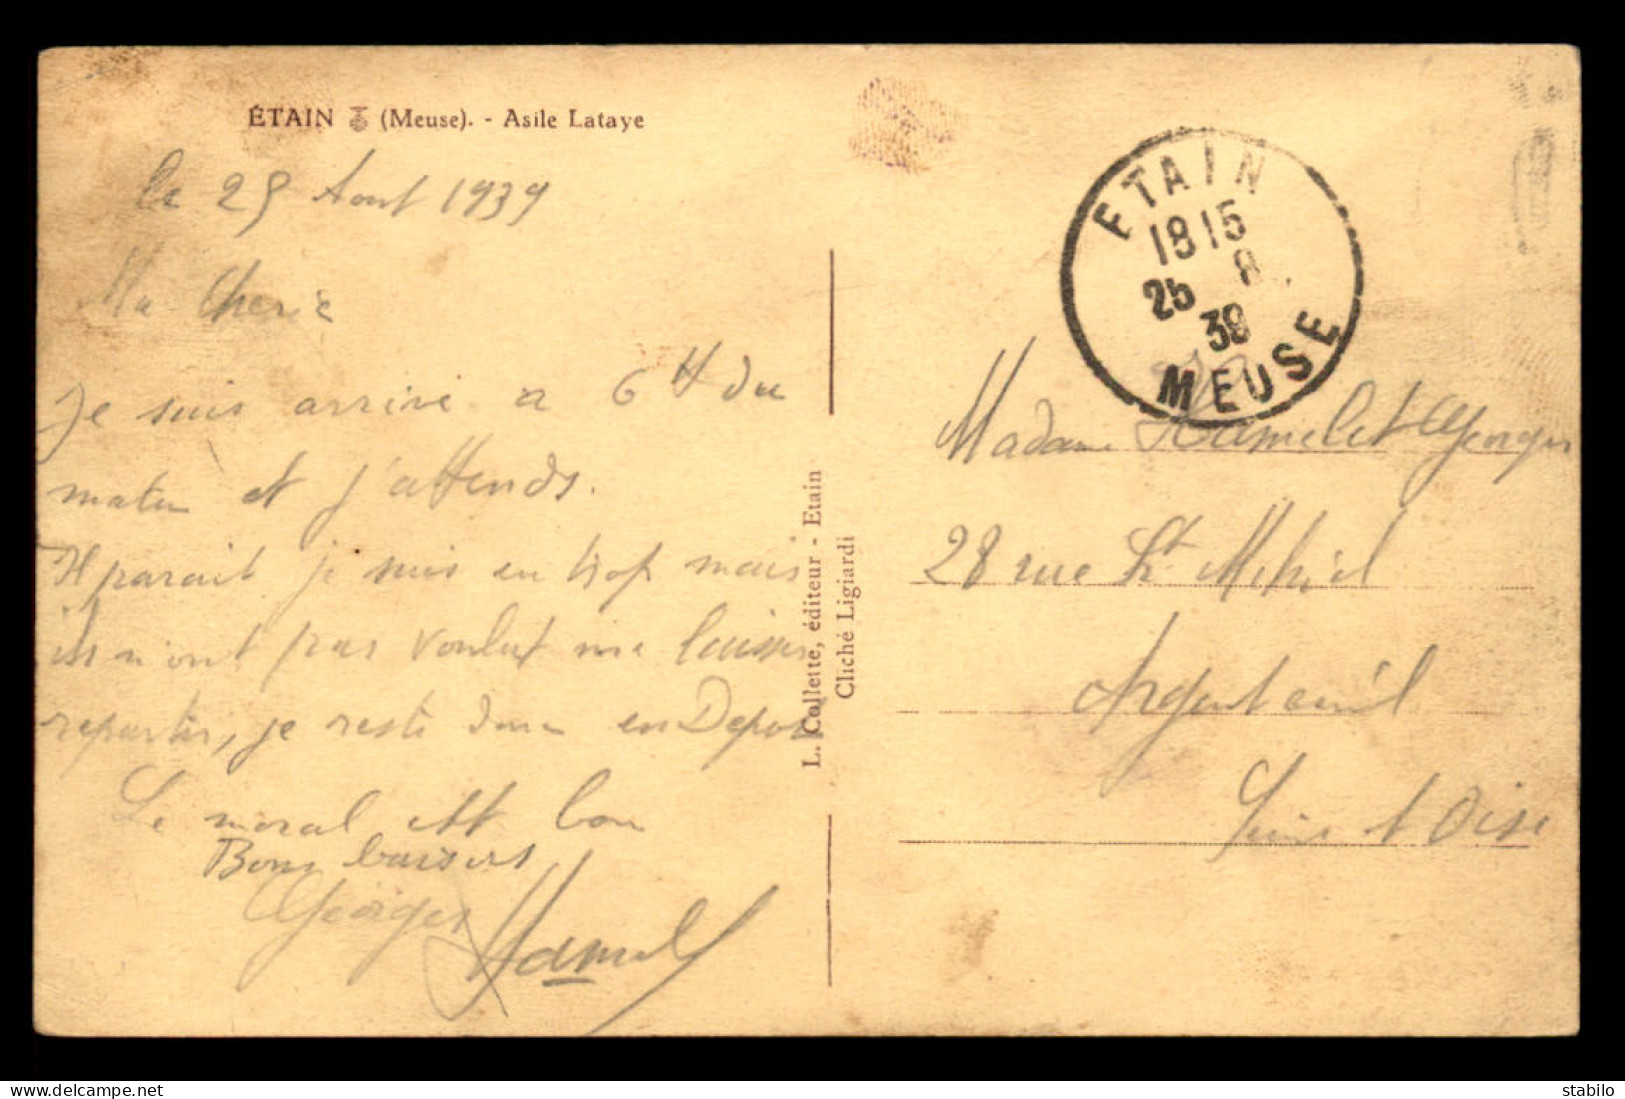 ÉTAIN (Meuse). - Asile Lataye
le 25 Aout 1939
Ma Cherie
Je suis arrive a 6 H du
matin et j'attends.
Il parait je suis en trop mais
ils n'ont pas voulut me laisser
repartir, je reste donc en Depot
Le moral est bon
Bons baisers
Georges
Hamel
L. Collette, éditeur - Etain
Cliché Ligiardi
ETAIN
18 15
25 8
39
MEUSE
Madame Georges
28 rue St
Argenteuil
Seine et Oise
delcampe.net
stabilo